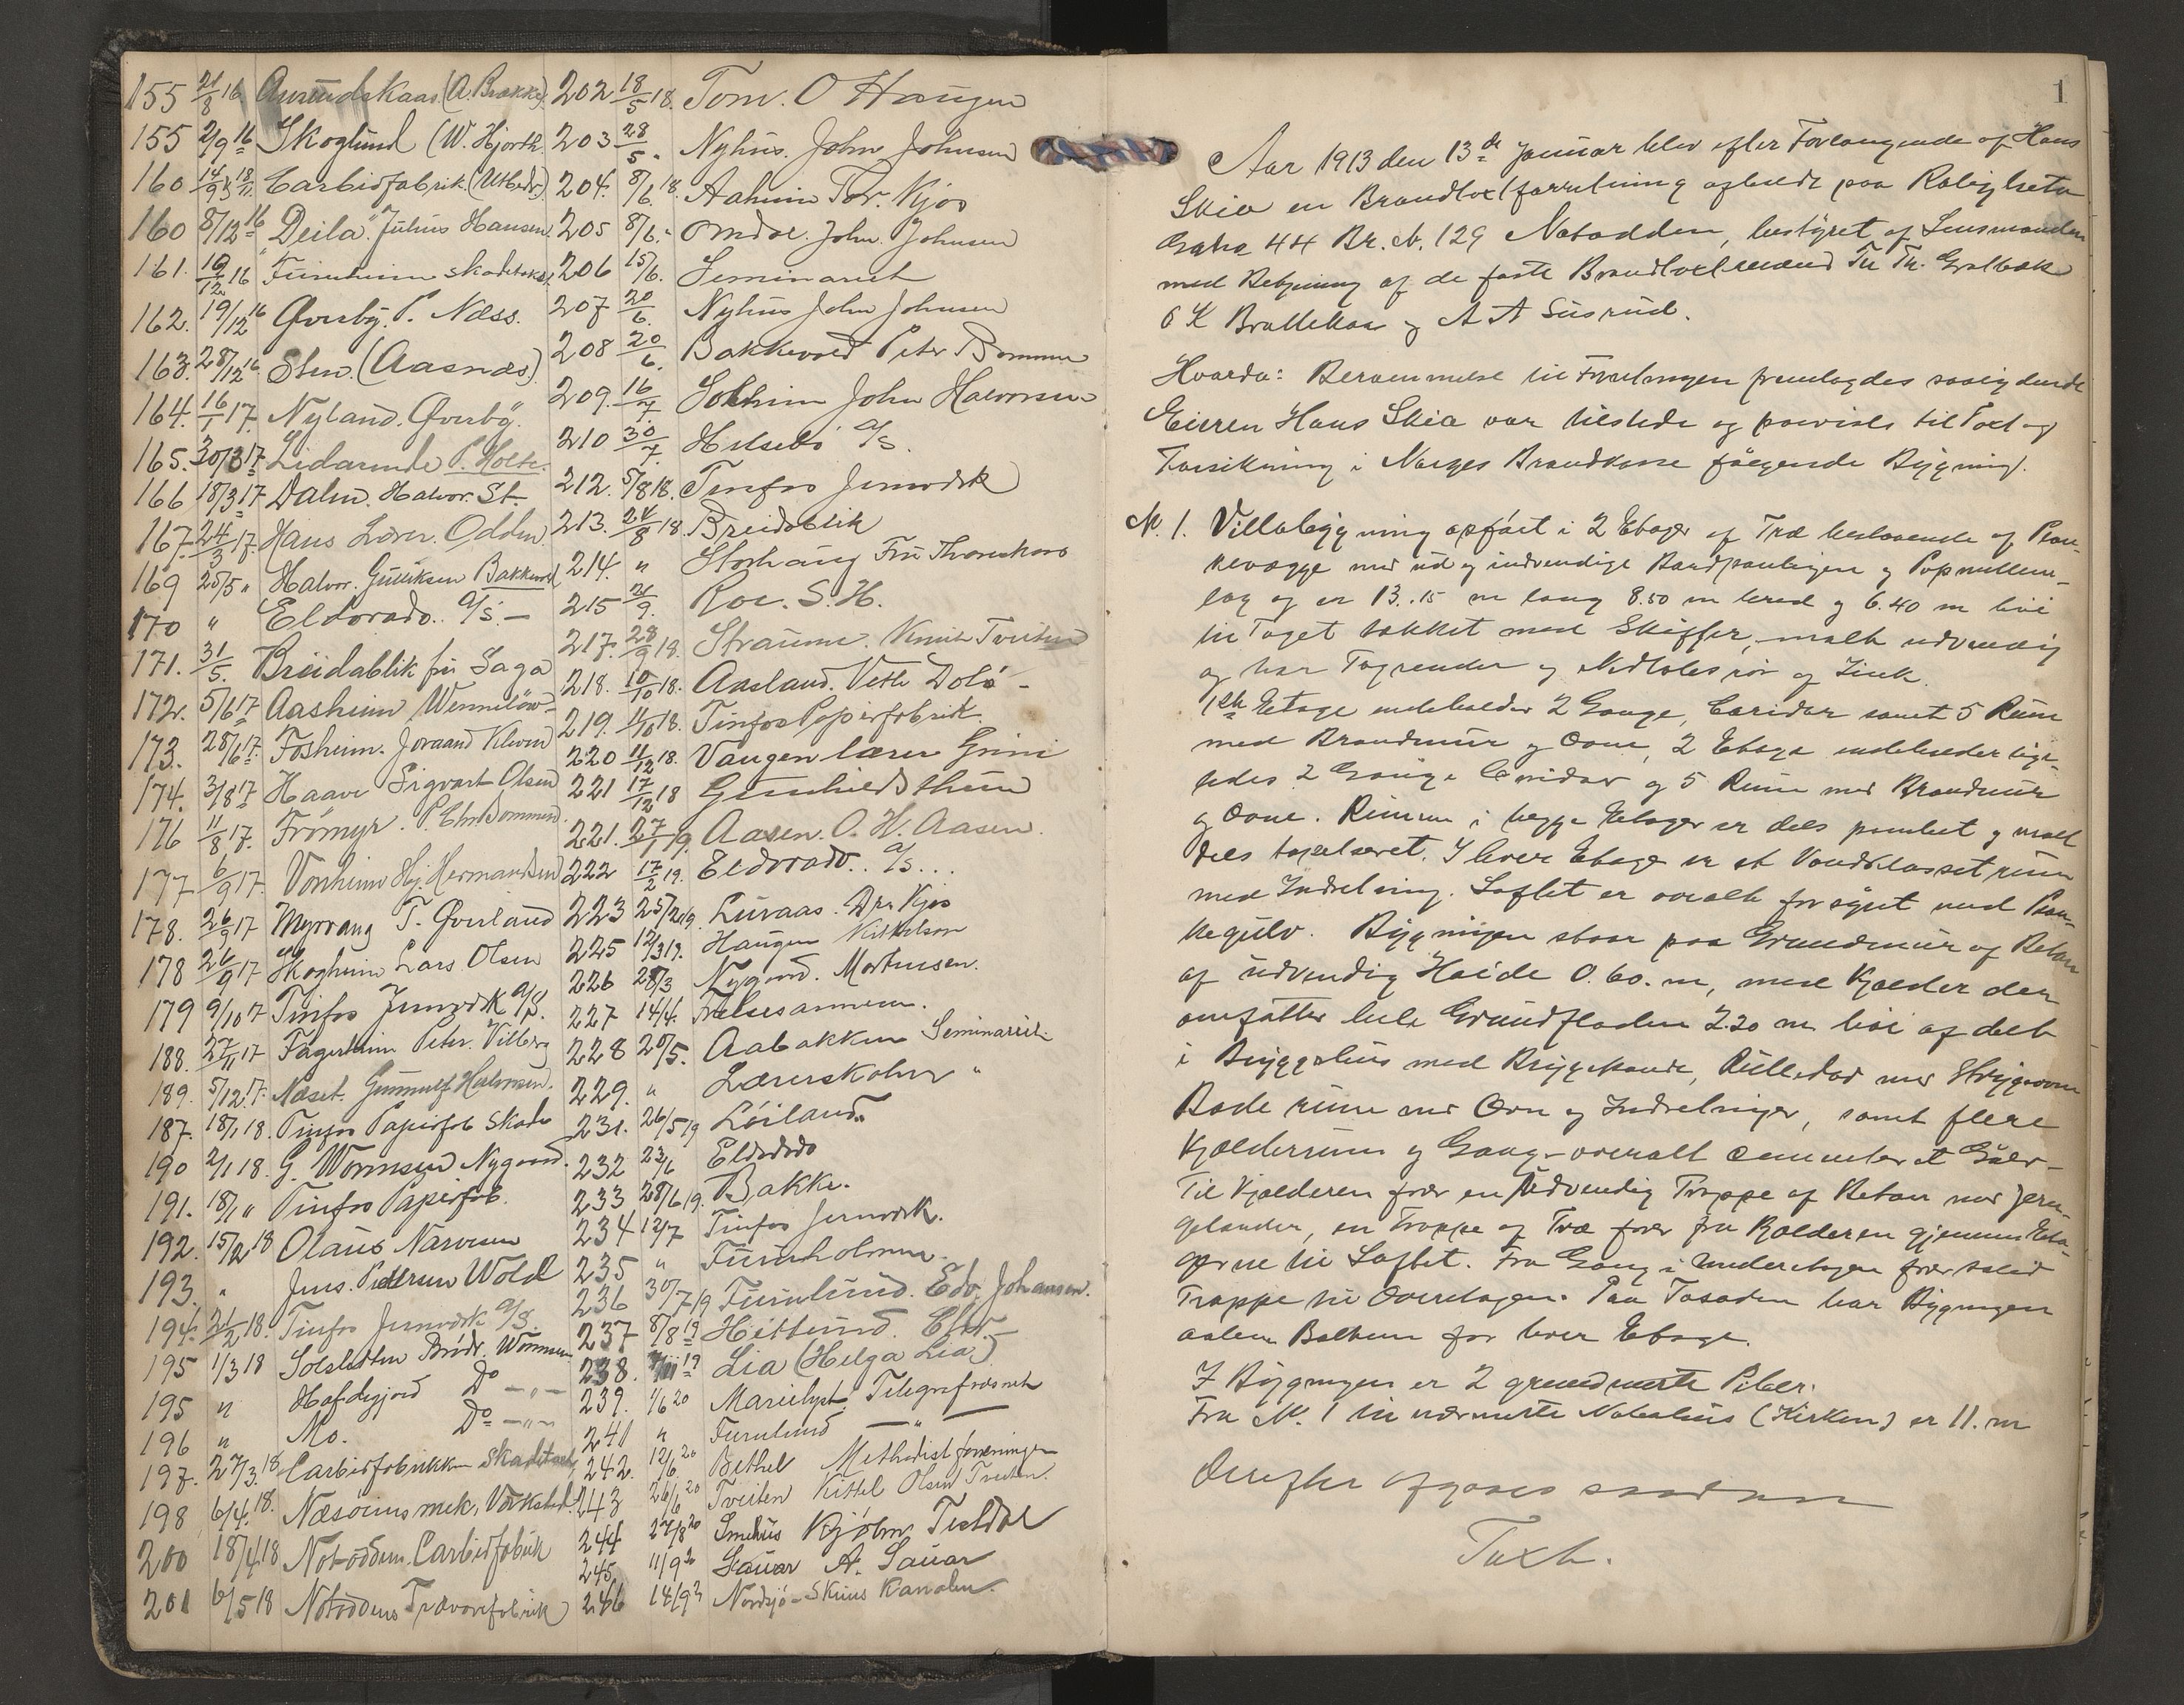 155 21/8 16 Amundskaas (A. Brække)
155 2/9 16 Skoglund (W. Hjorth.
160 14/9 & 18/11 Carbidfabrik. (Utbedr.)
160 8/12 16 "Deila" Julius Hansen
161. 16/12 16 Furuheim skadetakst
162. 19/12 16 Øverby. P. Næss.
163. 28/12 16. Sten. (Aasnæs)
164. 16/1 17. Nyland. Øverby.
165. 30/3 17 Lidarende P. Holte.
166 18/3 17 Dalen. Halvor. St.
167. 24/3 17. Hans Lorer. Odden
169 25/5 " Halvor. Gulliksen Bakkevold
170 " Eldorado. A/S. —
171. 31/5. Breidablik fru Saga
172. 5/6 17 Aasheim Wennilöw
173. 28/6 17. Fosheim. Joraand Kleven
174. 3/8 17 Haave Sigvart Olsen
176 11/8 17. Frömyr. P. Bommen
177 6/9 17. Vonheim Hj. Hermandsen
178. 26/9 17 Myrvang T. Øverland
178 26/9 17 Skogheim Lars Olsen
179 9/10 7 Tinfos Jernverk A/S.
188. 27/11 17 Fagerheim Peter. Villberg
189. 5/12. 17. Næset. Gunnulf Halvorsen.
187. 18/1 18. Tinfos Papirfab Skade
190 2/1 18. G. Wormsen Nygaard.
191. 18/1 " Tinfos Papirfab.
192. 15/2 18 Olaus Narvesen
193. " Jens. Pedersen Wold
194. 21/2 18. Tinfos Jernverk A/S.
195 1/3 18 Solsletten Brödr. Wormsen
195 " Hafdegjord Do — " —
196 " Mo. Do — " —
197. 27/3. 18. Carbidfabrikken skadetakst
198 6/4. 18. Næsöens mek. Værksted
200 18/4 18 Notodden Carbidfabrik
201 6/5 18 Notoddens Trævarefabrik
202 18/5 18. Tom. O Haugen
203 28/5 " Nyhus. John Johnsen
204. 8/6. 18. Aaheim Tor. Kjos
205 8/6. " Omdal. John. Johnsen
206 15/6. Seminariet
207 20/6. Nyhus John Johnsen
208 20/6. Bakkevold Peter Bommen
209. 16/7 Solheim John Halvorsen
210 30/7. Helsebö A/S.
212. 5/8 18. Tinfos Jernverk
213. 24/8 18. Breidablik
214. " Storhaug Fru Thoreskaas
215 21/9. Roe. S. H.
217. 28/9 18. Straume. Tveiten
218. 10/10 18. Aasland. Vetle Dolö —
219. 11/10 18. Tinfos Papirfabrik.
220 11/12 18. Vangen lærer Grini
221 17/12 18 Gunhilds thun
221. 27/1 19. Aasen. O. H. Aasen.
222 17/2 19. Eldorado. A/S...
223 25/2 19. Luraas. Kjos
225 12/3 19. Haugen Kittelson
226 28/3 Nygaard. Mortensen.
227 14/4. Frelsesarmeen.
228 20/5. Aabakken Seminariet
229. " Lærerskolen "
231. 26/5 19 Löiland.
232 23/6 Eldorado
233 28/6 19. Bakke.
234 12/7 Tinfos Jernverk.
235 " Furuholmen.
236 30/7 19 Furulund. Edv. Johansen.
237 8/8 19 Hetlund.
238. 19 Lia (Helga Lia)
239. 1/6 20 Marielyst. Telegrafvæsnet
241 " Furulund — " —
242. 12/6. 20 Bethel Methodistforeningen
243 26/6 20 Tveiten Kittel Olsen Tveiten.
244 27/8 20 Smehus Kjöbm Tveldal
245 11/9 20 Sauar A. Sauar
246 14/9 20 Nordsjö - Skiens Kanalen.
1
Aar 1913 den 13de Januar blev efter Forlangende af Hans
Skia en Brandtaxtforretning afholdt paa Rolighete
Gaha 44 Br. N. 129 Notodden, bestyret af Lensmanden
med Betjening af de faste Brandtaxtmænd Th Th. Grolbæk
O K Brattekaas og A A Susrud.
Hvorda: Berammelse til Forretningen fremlagdes saalydende
Eieren Hans Skia var tilstede og paaviste til Taxt og
Forsikring i Norges Brandkasse følgende Bygning.
N. 1. Villabygning opført i 2 Etager af Træ bestaaende af Plan-
kevægge med ud og indvendige Bordpanlinger og Papmellem-
lag og er 13.15 m lang 8.50 m bred og 6.40 m höi
til Taget tækket med Skiffer, malt udvendig
og har Tagrender og Nedløbsrör af Zink.
1ste Etage indeholder 2 Gange, Coridor samt 5 Rum
med Brandmur og Ovne, 2 Etage indeholder lige-
ledes 2 Gange Coridor og 5 Rum med Brandmur
og Ovne. Rummene i begge Etager er dels panelet og malt
dels tapetseret. I hver Etage er et Vandklosset rum
med Indretning. Loftet er overalt forsynet med Plan-
kegulv. Bygningen staar paa Grundmur af Beton
af udvendig Höide 0.60. m, med Kjelder der
omfatter hele Grundfladen 2.20 m höi afdelt
i Bryggehus med Bryggepande, Rullebod med Strygeovn
Bade rum med Ovn og Indretninger, samt flere
Kjælderrum og Gang - overalt cementeret Gulv -
Til Kjælderen förer en udvendig Trappe af Beton med Jern-
gelænder, en Trappe af Træ förer fra Kjælderen gjennem Eta-
gerne til Loftet. Fra Gang i Underetagen förer solid
Trappe til Overetagen. Paa Fasaden har Bygningen
aaben Balkon for hver Etage.
I Bygningen er 2 grundmurte Piber.
Fra N. 1 til nærmeste Nabohus (Kirken) er 11. m
Derefter afgaves saadan
Taxt.